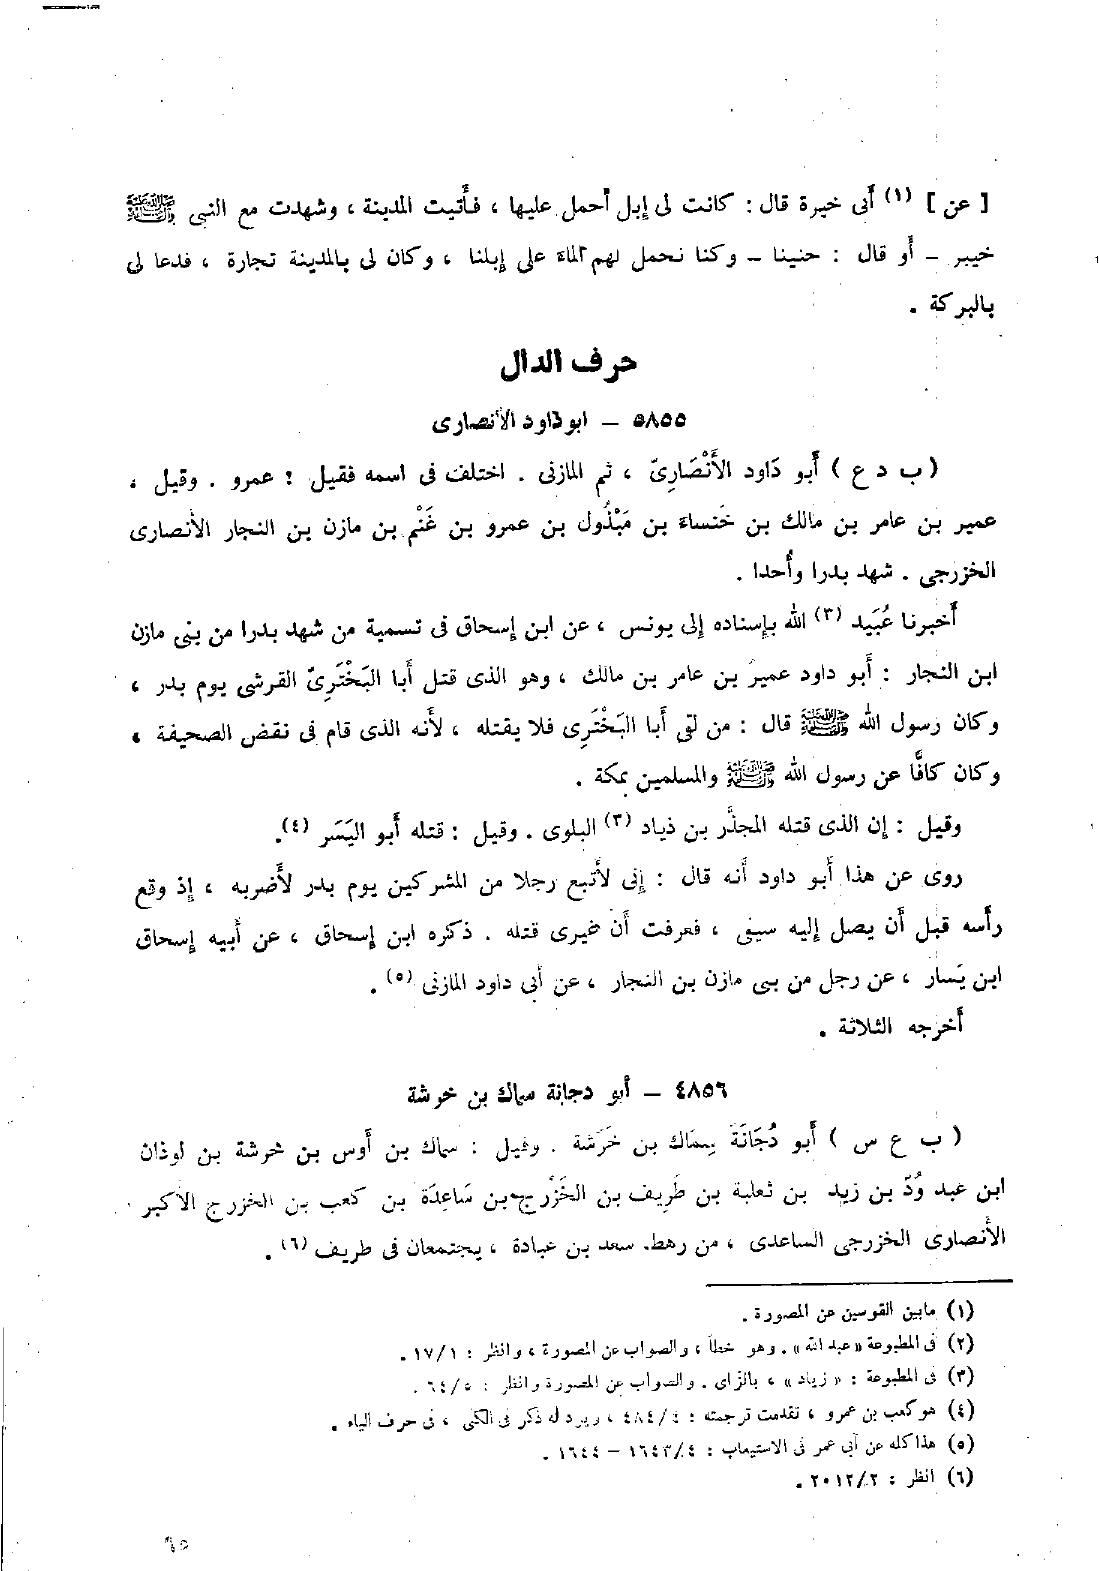 [ عن ] (١) أبى خيرة قال : كانت لى إبل أحمل عليها ، فأتيت المدينة ، وشهدت مع النبى ﷺ
خيبر – أو قال : حنينا – وكنا نحمل لهم الماء على إبلنا ، وكان لى بالمدينة تجارة ، فدعا لى
بالبركة .
حرف الدال
٥٨٥٥ – ابو داود الأنصارى
( ب د ع ) أبو دَاود الأَنْصَارِىّ ، ثم المازنى . اختلف فى اسمه فقيل : عمرو . وقيل ،
عمير بن عامر بن مالك بن خَنساء بن مَبْذُول بن عمرو بن غَنْم بن مازن بن النجار الأنصارى
الخزرجى . شهد بدرا وأُحدا .
أخبرنا عُبَيد (٢) الله بإسناده إلى يونس ، عن ابن إسحاق فى تسمية من شهد بدرا من بنى مازن
ابن النجار : أبو داود عمير بن عامر بن مالك ، وهو الذى قتل أبا البَخْتَرِىّ القرشى يوم بدر ،
وكان رسول الله ﷺ قال : من لقى أبا البَخْتَرِى فلا يقتله ، لأنه الذى قام فى نقض الصحيفة ،
وكان كافًّا عن رسول الله ﷺ والمسلمين بمكة .
وقيل : إن الذى قتله المجذَّر بن ذياد (٣) البلوى . وقيل : قتله أبو اليَسَر (٤).
روى عن هذا أبو داود أنه قال : إنى لأتبع رجلا من المشركين يوم بدر لأضربه ، إذ وقع
رأسه قبل أن يصل إليه سيفى ، فعرفت أن غيرى قتله . ذكره ابن إسحاق ، عن أبيه إسحاق
ابن يَسار ، عن رجل من بنى مازن بن النجار ، عن أبى داود المازنى (٥) .
أخرجه الثلاثة .
٤٨٥٦ – أبو دجانة سماك بن خرشة
( ب ع س ) أبو دُجَانَة سِمَاك بن خَرَشة . وقيل : سماك بن أوس بن خرشة بن لوذان
ابن عبد وُدّ بن زيد بن ثعلبة بن طَرِيف بن الخَزْرج بن سَاعِدَة بن كعب بن الخزرج الأكبر
الأنصارى الخزرجى الساعدى ، من رهط سعد بن عبادة ، يجتمعان فى طريف (٦) .
(١) مابين القوسين عن المصورة .
(٢) فى المطبوعة «عبد الله» . وهو خطأ ، والصواب عن المصورة ، وانظر : ١/١٧ .
(٣) فى المطبوعة : « زياد» ، بالزاى . والصواب عن المصورة وانظر : ٥/٦٤ .
(٤) هو كعب بن عمرو ، تقدمت ترجمته : ٤/٤٨٤ ، ويرد له ذكر فى الكنى ، فى حرف الياء .
(٥) هذا كله عن أبى عمر فى الاستيعاب : ٤/١٦٤٣ – ١٦٤٤ .
(٦) انظر : ٢/٢٠١٢ .